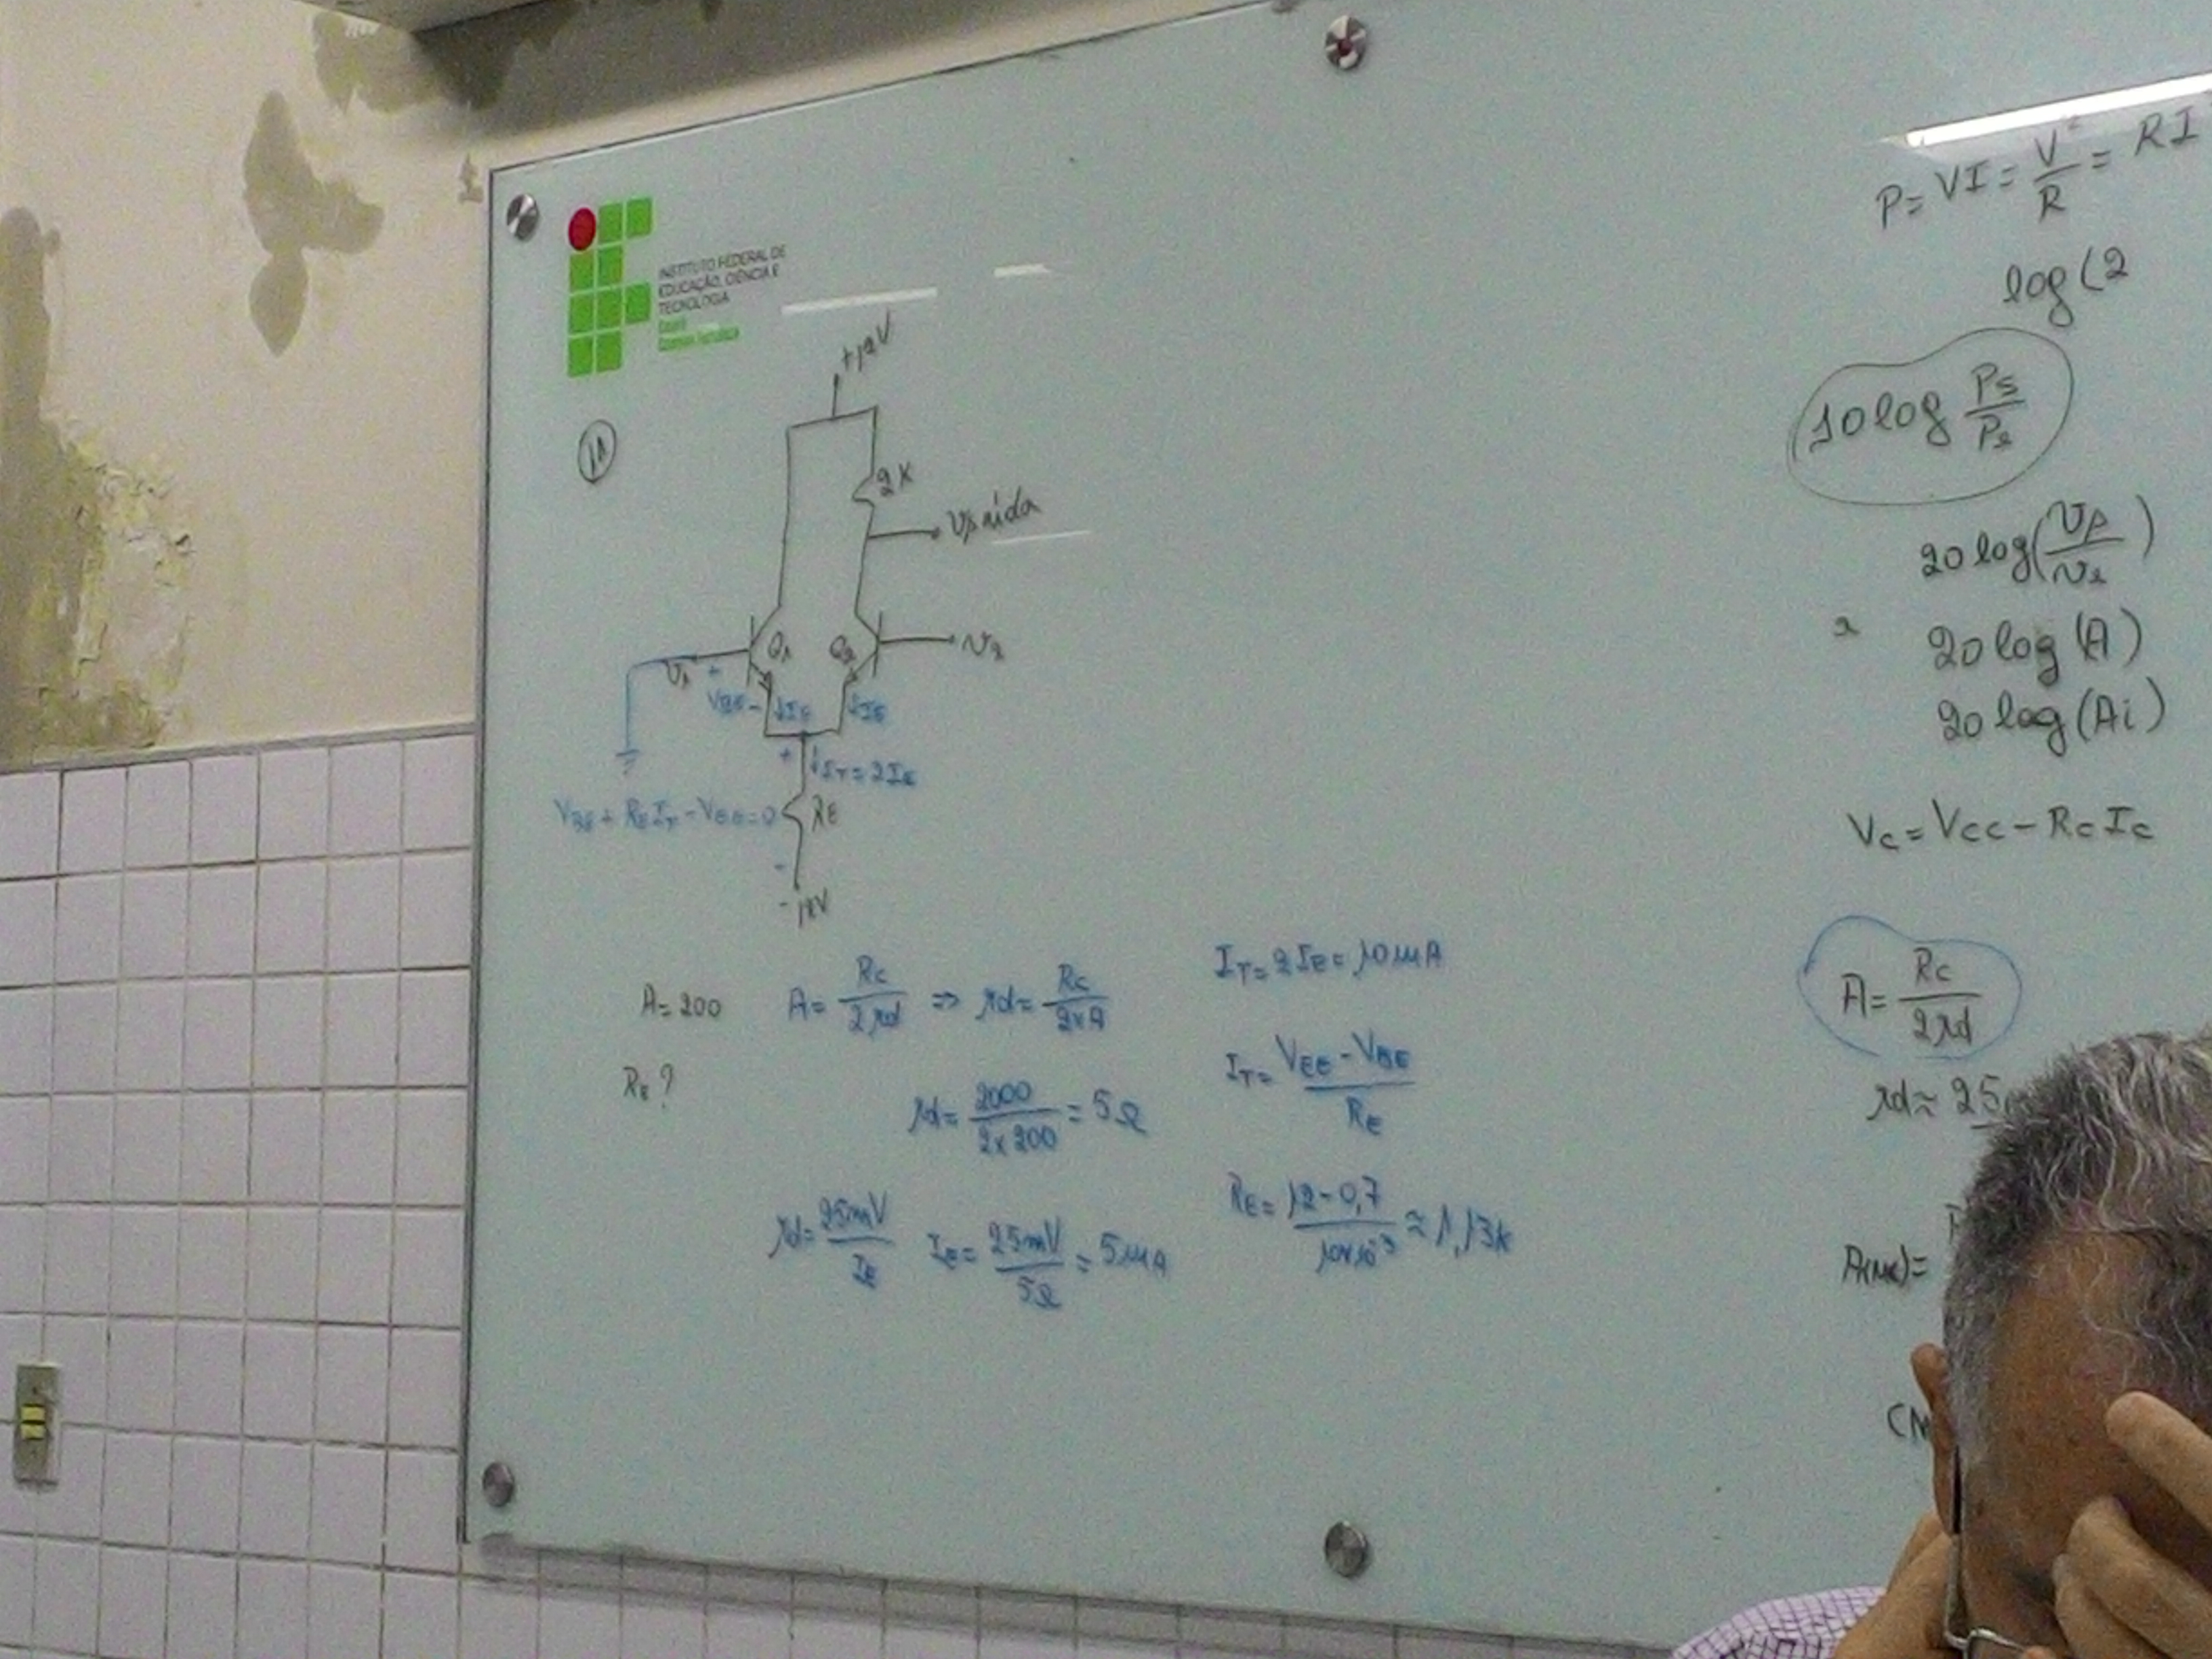 INSTITUTO FEDERAL DE
EDUCAÇÃO, CIÊNCIA E
TECNOLOGIA
Ceará
+12V
2K
Vsaída
Q1
Q2
V1
+
V2
VBE
-
↓IE
↓IE
+
↓IT=2IE
VBE + REIT - VEE = 0
RE
-
-12V
A=200
A= Rc/2rd ⇒ rd= Rc/2xA
RE?
rd= 2000/2x200 = 5Ω
rd= 25mV/IE
IE= 25mV/5Ω = 5mA
IT= 2IE= 10mA
IT= VEE - VBE/RE
RE= 12-0,7/10x10⁻³ ≈ 1,13k
P= VI= V²/R = RI
log(2
10log Ps/Pe
20log(Vs/Ve)
20log(A)
20log(Ai)
Vc= Vcc - RcIc
A= Rc/2rd
rd≈ 25
A(MC)=
CM